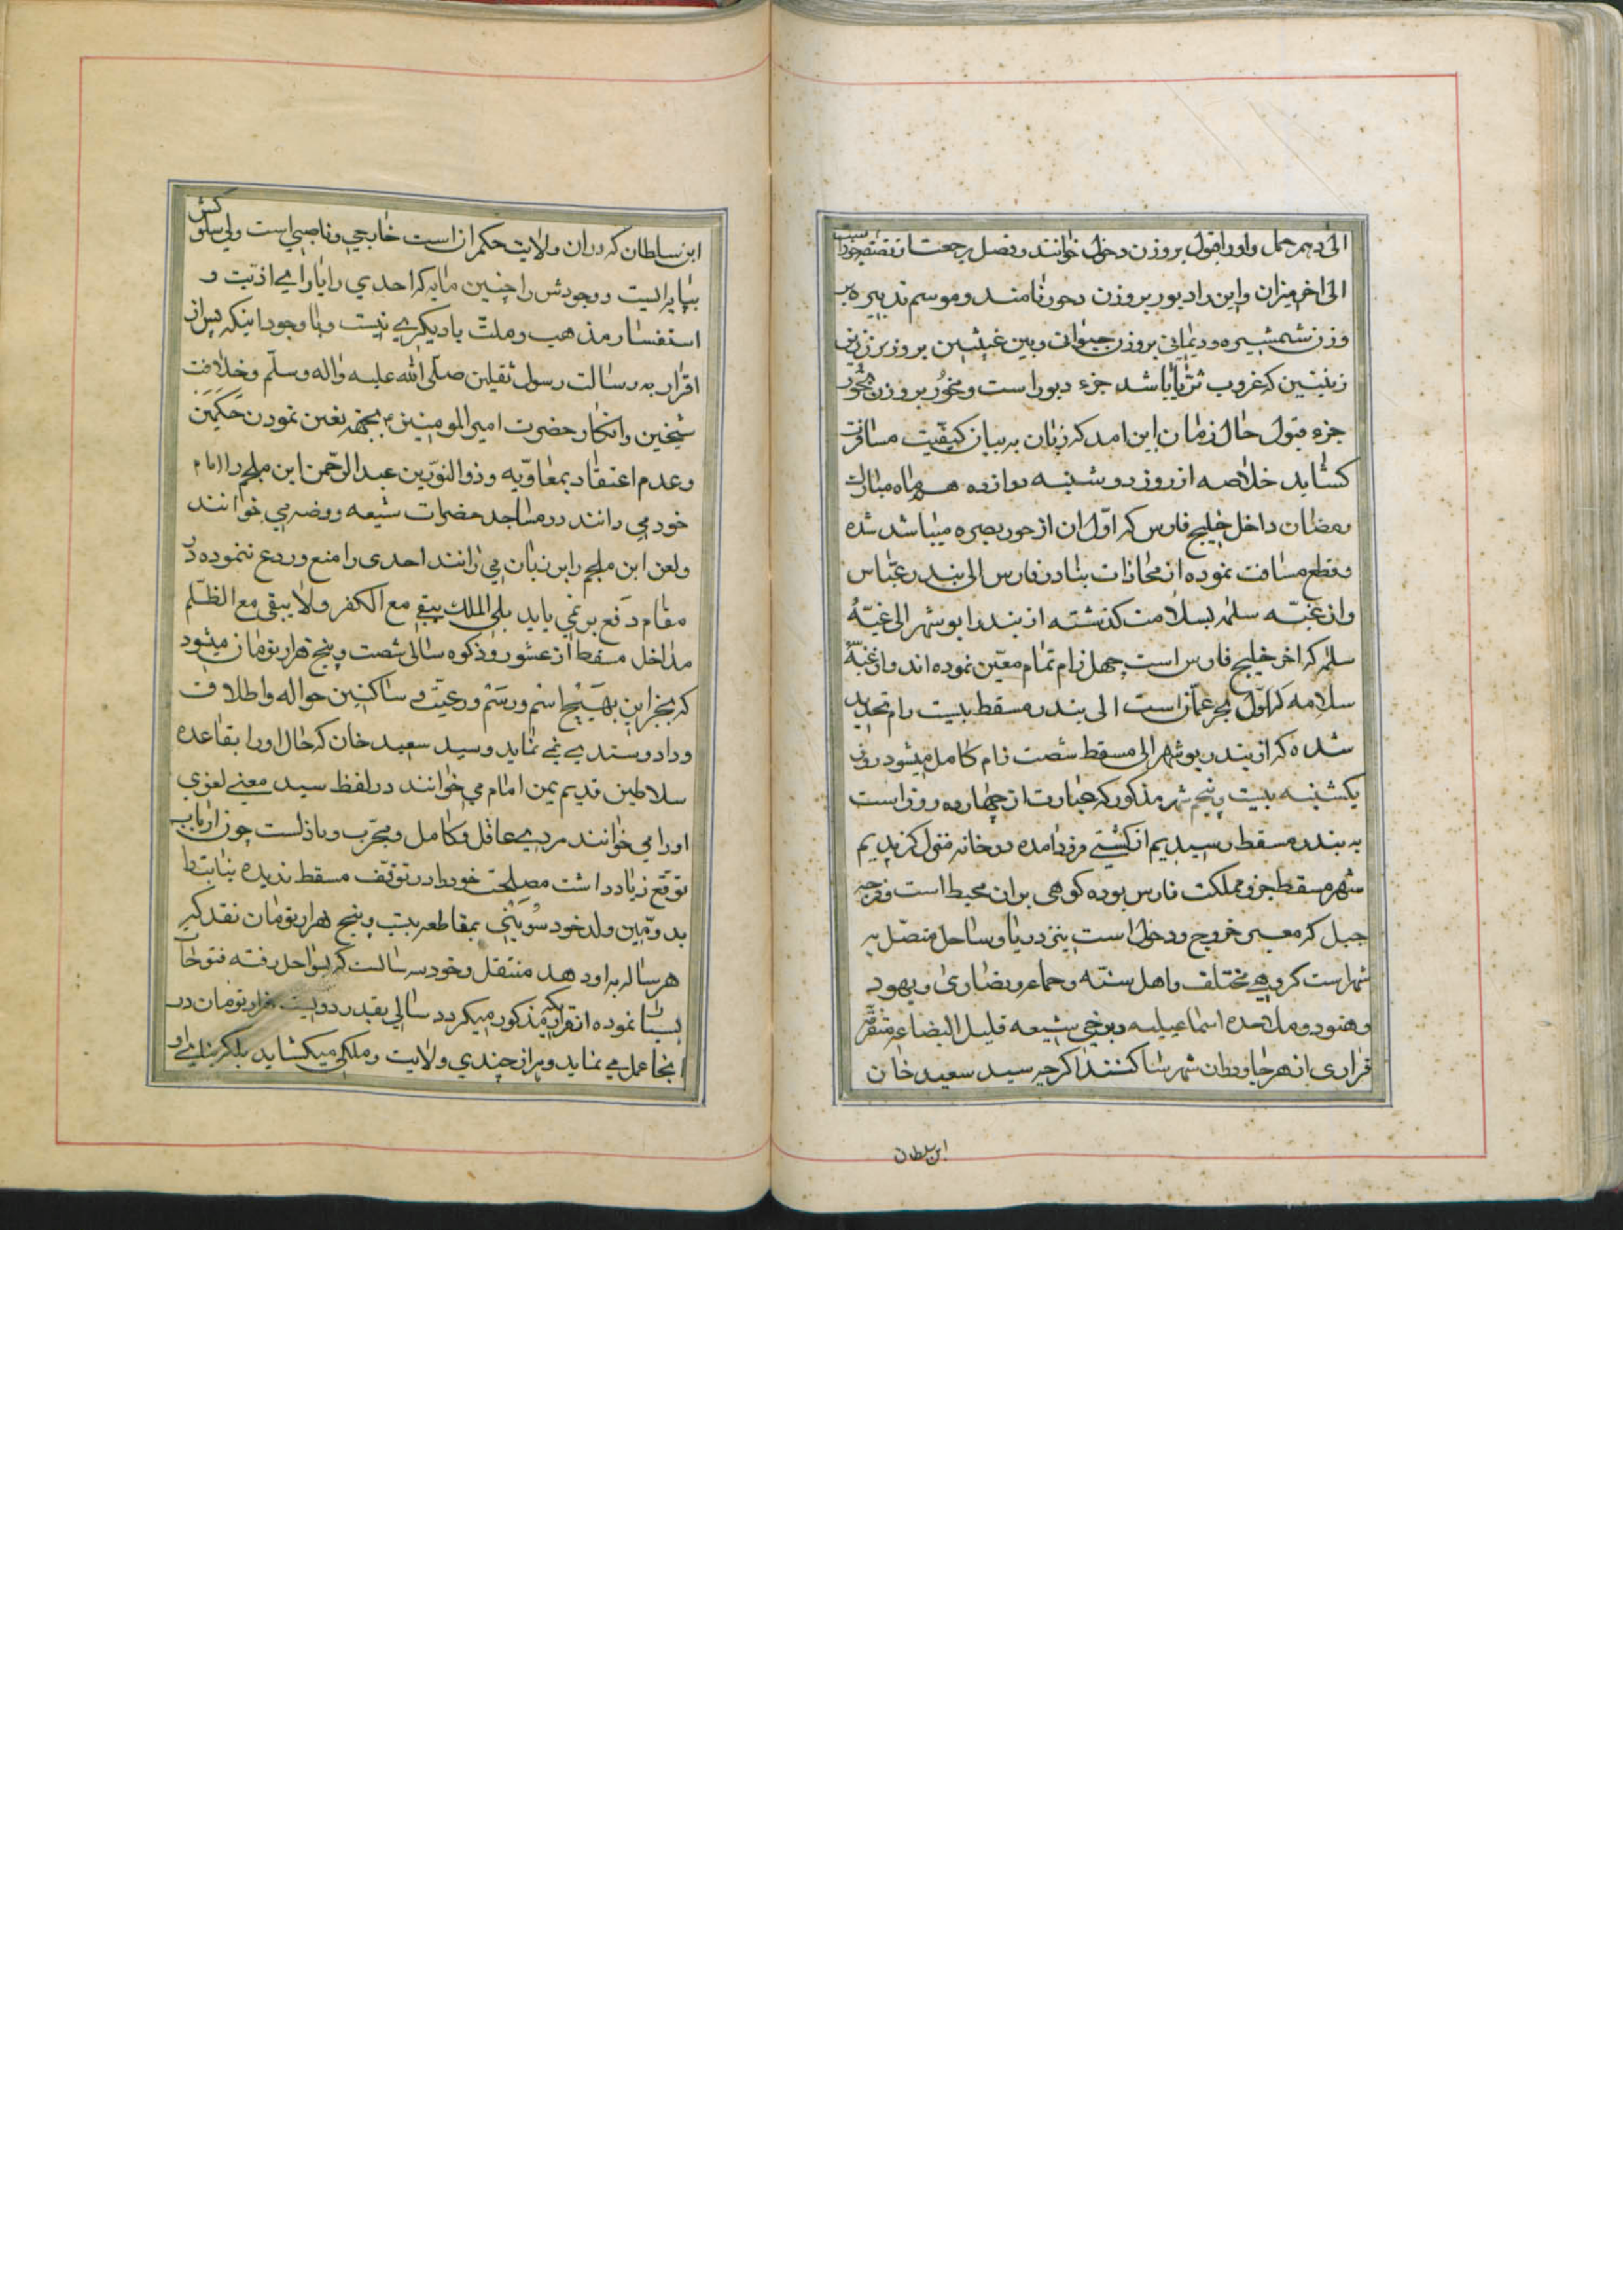 الی دهم حمل و او را قول بروزن دخول خوانند و فصل رجعت از تصف جوزا است
الی اخر میزان و این را دیور بروزن دحور نامند و موسم تدبیره بر
وزن شمشیره و دیمانی بروزن حیوانی و بین غیبتین بروزن
زینتین که غروب ثریا باشد جزء دیور است و مخور بروزن بخور
جزء قول حال زمان این امد که زبان به بیان کیفیت مسافرت
کشاید خلاصه از روز دوشنبه دوازدهم ماه مبارک
رمضان داخل خلیج فارس که اول ان از حور بصره میباشد شده
و قطع مسافت نموده از محاذات بنادر فارس الی بندر عباس
و از غبّه سلمه بسلامت کذشته از بندر ابوشهر الی غبّهٔ
سلمه که اخر خلیج فارس است چهل زام تمام معین نموده اند و از غبّهٔ
سلامه که اول بحر عمان است الی بندر مسقط بیست زام تحدید
شده که از بندر بوشهر الی مسقط شصت زام کامل میشود روز
یکشنبه بیست و پنجم شهر مذکور که عبارت از چهارده روز است
به بندر مسقط رسیدیم از کشتی فرود امده در خانه منزل کزیدیم
شهر مسقط جزو مملکت فارس بوده کوهی بر ان محیط است و فرجه
جبل که معبر خروج و دخول است بنزد دریا و ساحل متصل به
شهر است کروهی مختلف و اهل سنته و جماعه و نصاری و یهود
و هنود و ملاحده اسماعیلیه و برخی شیعه قلیل البضاعه متفرقه
فراری از هر جا در ان شهر ساکنند اکرچه سید سعید خان
ابن سلطان
ابن سلطان که در ان ولایت حکمران است خارجی و ناصبی است ولی سلوکش
بپایه ایست و وجودش را چنین مایه که احدی را یارای اذیت و
استفسار مذهب و ملت با دیکری نیست و با وجود اینکه پس از
اقرار به رسالت رسول ثقلین صلی الله علیه و اله و سلم و خلافت
شیخین و انکار حضرت امیر المومنین ع بجهة تعین نمودن حکمین
و عدم اعتقاد بمعاویه و ذو النورین عبد الرحمن ابن ملجم را امام
خود می دانند در مساجد حضرات شیعه روضه می خوانند
و لعن ابن ملجم را بر زبان می رانند احدی را منع و ردع ننموده در
مقام دفع بر نمی یاید بلی الملک یبقی مع الکفر و لا یبقی مع الظلم
مداخل مسقط از عشور و زکوه سالی شصت و پنج هزار تومان میشود
که بجز این بهیچ اسم و رسم و رعیت و ساکنین حواله و اطلاق
و داد و ستدی نمی نماید و سید سعید خان که حال او را بقاعده
سلاطین قدیم یمن امام می خوانند در لفظ سید معنی لغوی
او را می خوانند مردی عاقل و کامل و مجرب و باذلست چون ارباب
توقع زیاد داشت مصلحت خود را در توقف مسقط ندیده بنابتا
بدومین ولد خود سوینی بمقاطعه بیست و پنج هزار تومان نقد که
هر ساله به او دهد منتقل و خود سه سالست که بسواحل رفته فتوحات
بسیار نموده از قراریکه مذکور میکردد سالی بقدر دویست هزار تومان در
انجا عمل می نماید و هر از چندی ولایت و ملکی میکشاید بلکه